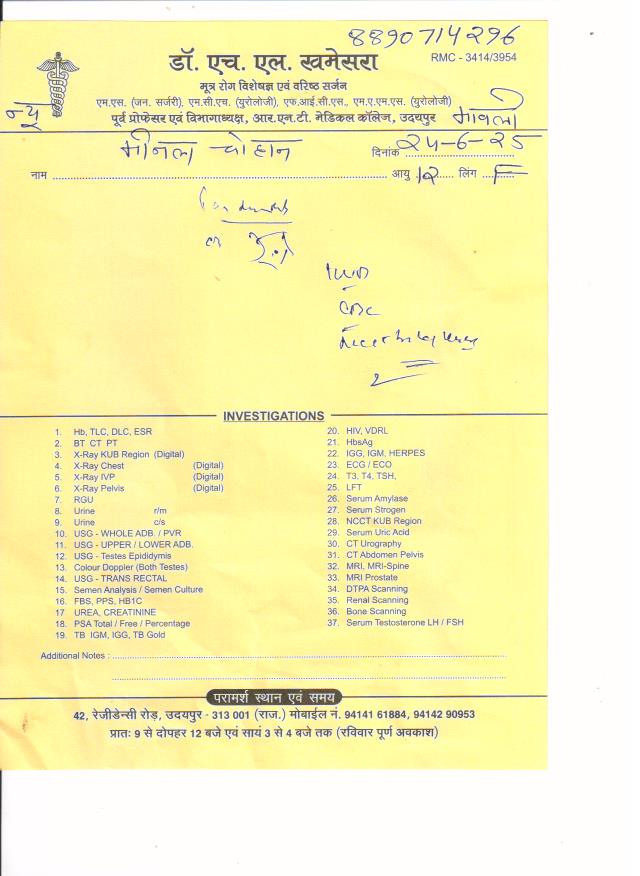 8890714296
डॉ. एच. एल. खमेसरा
RMC - 3414/3954
मूत्र रोग विशेषज्ञ एवं वरिष्ठ सर्जन
एम.एस. (जन. सर्जरी), एम.सी.एच. (युरोलोजी), एफ.आई.सी.एस., एम.ए.एम.एस. (युरोलोजी)
न्यू
पूर्व प्रोफेसर एवं विभागाध्यक्ष, आर.एन.टी. मेडिकल कॉलेज, उदयपुर मावली
दिनांक 24-6-25
नाम चौहान आयु 12 लिंग F
CBC
INVESTIGATIONS
1. Hb, TLC, DLC, ESR
2. BT CT PT
3. X-Ray KUB Region (Digital)
4. X-Ray Chest (Digital)
5. X-Ray IVP (Digital)
6. X-Ray Pelvis (Digital)
7. RGU
8. Urine r/m
9. Urine c/s
10. USG - WHOLE ADB. / PVR
11. USG - UPPER / LOWER ADB.
12. USG - Testes Epididymis
13. Colour Doppler (Both Testes)
14. USG - TRANS RECTAL
15. Semen Analysis / Semen Culture
16. FBS, PPS, HB1C
17. UREA, CREATININE
18. PSA Total / Free / Percentage
19. TB IGM, IGG, TB Gold
20. HIV, VDRL
21. HbsAg
22. IGG, IGM, HERPES
23. ECG / ECO
24. T3, T4, TSH,
25. LFT
26. Serum Amylase
27. Serum Strogen
28. NCCT KUB Region
29. Serum Uric Acid
30. CT Urography
31. CT Abdomen Pelvis
32. MRI, MRI-Spine
33. MRI Prostate
34. DTPA Scanning
35. Renal Scanning
36. Bone Scanning
37. Serum Testosterone LH / FSH
Additional Notes :
परामर्श स्थान एवं समय
42, रेजीडेन्सी रोड़, उदयपुर - 313 001 (राज.) मोबाईल नं. 94141 61884, 94142 90953
प्रातः 9 से दोपहर 12 बजे एवं सायं 3 से 4 बजे तक (रविवार पूर्ण अवकाश)